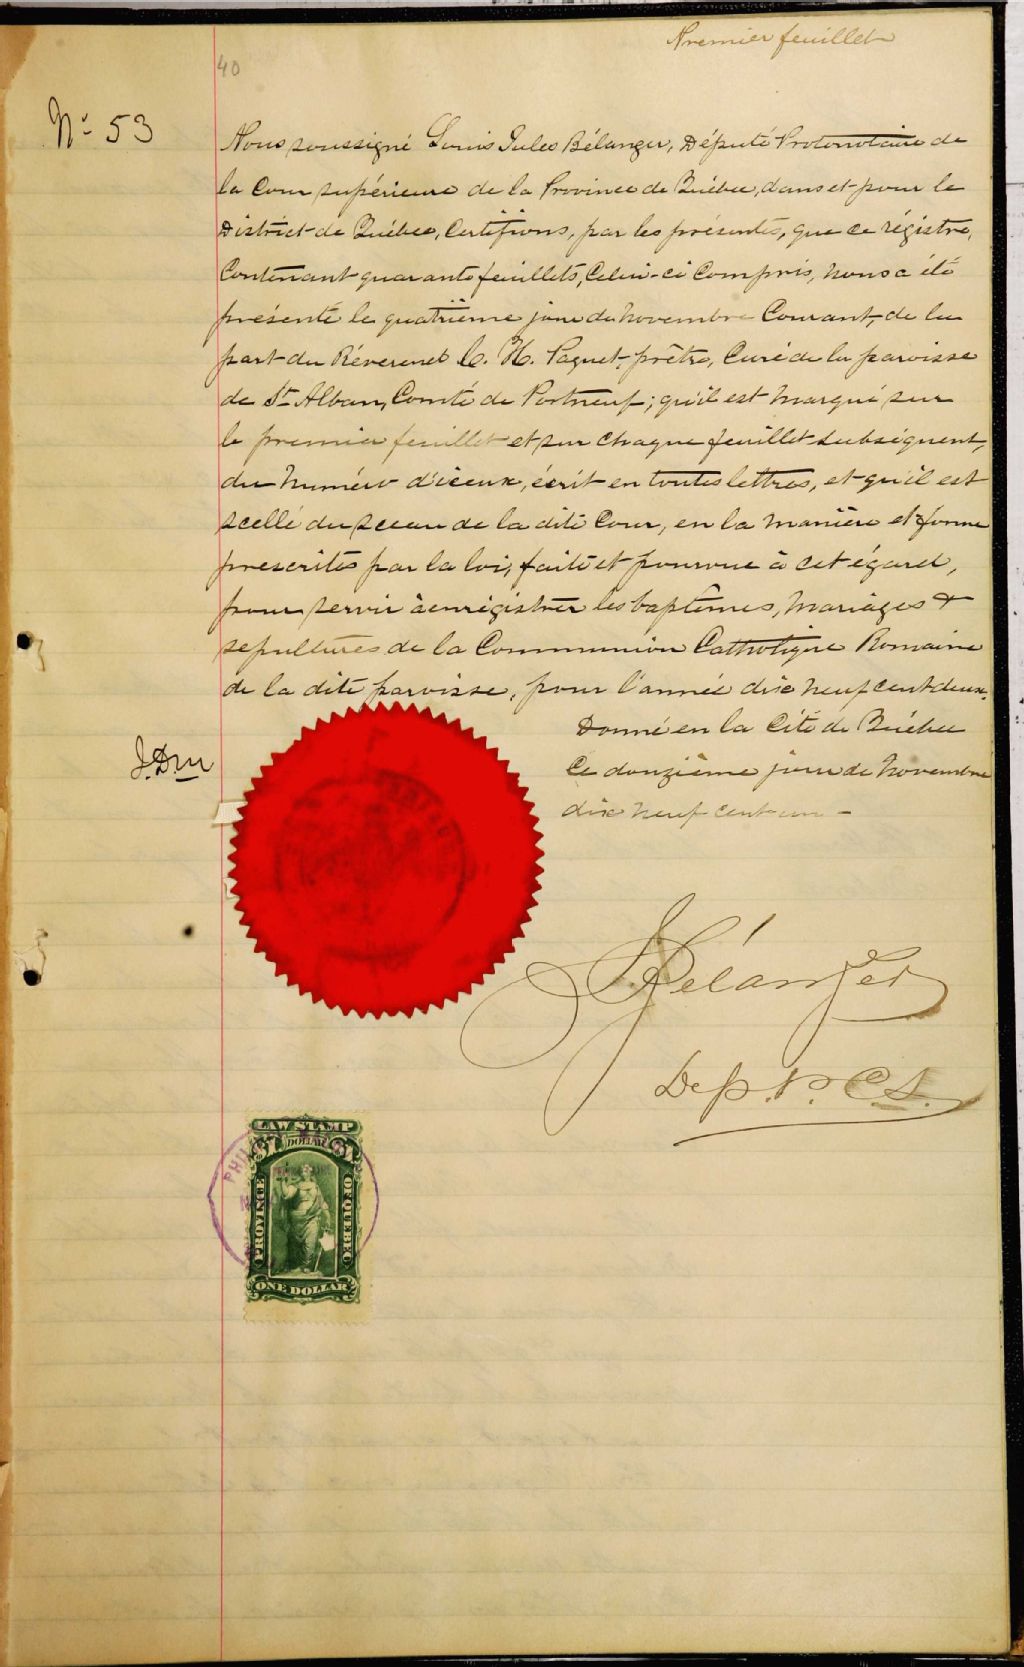 Premier feuillet
40
No 53
Nous soussigné Louis Jules Bélanger, Député Protonotaire de
la Cour supérieure de la Province de Québec, dans et pour le
District de Québec, Certifions, par les présentes, que ce régistre,
Contenant quarante feuillets, Celui-ci Compris, nous a été
présenté le quatrième jour de novembre Courant, de la
part du Révérend C. H. Paquet, prêtre, Curé de la paroisse
de St Alban, Comté de Portneuf; qu'il est marqué sur
le premier feuillet et sur chaque feuillet subséquent,
du numéro d'iceux, écrit en toutes lettres, et qu'il est
scellé du sceau de la dite Cour, en la manière et forme
prescrites par la loi, faite et pourvue à cet égard,
pour servir à enrégistrer les baptêmes, mariages &
sépultures de la Communion Catholique Romaine
de la dite paroisse, pour l'année dix neuf cent deux.
Donné en la Cité de Québec
Ce douzième jour de novembre
dix neuf cent un -
Bélanger
Dep. P. C. S.
LAW STAMP
DOLLAR
PROVINCE
OF QUEBEC
ONE DOLLAR